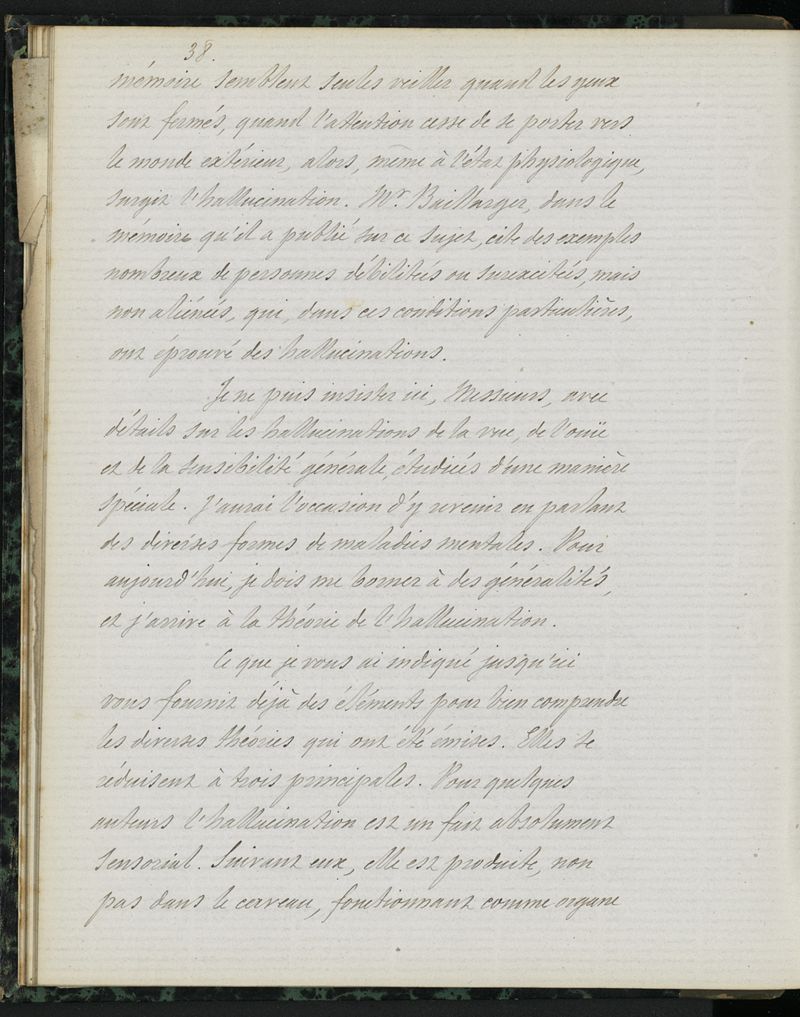 38.
mémoire semblent seules veiller quand les yeux
sont fermés, quand l'attention cesse de se porter vers
le monde extérieur, alors, même à l'état physiologique,
surgit l'hallucination. Mr. Baillarger, dans le
mémoire qu'il a publié sur ce sujet, cite des exemples
nombreux de personnes débilitées ou surexcitées, mais
non aliénées, qui, dans ces conditions particulières,
ont éprouvé des hallucinations.
Je ne puis insister ici, Messieurs, avec
détails sur les hallucinations de la vue, de l'ouïe
et de la sensibilité générale, étudiées d'une manière
spéciale. J'aurai l'occasion d'y revenir en parlant
des diverses formes de maladies mentales. Pour
aujourd'hui, je dois me borner à des généralités,
et j'arrive à la théorie de l'hallucination.
Ce que je vous ai indiqué jusqu'ici
vous fournit déjà des éléments pour bien comprendre
les diverses théories qui ont été émises. Elles se
réduisent à trois principales. Pour quelques
auteurs l'hallucination est un fait absolument
sensorial. Suivant eux, elle est produite, non
pas dans le cerveau, fonctionnant comme organe